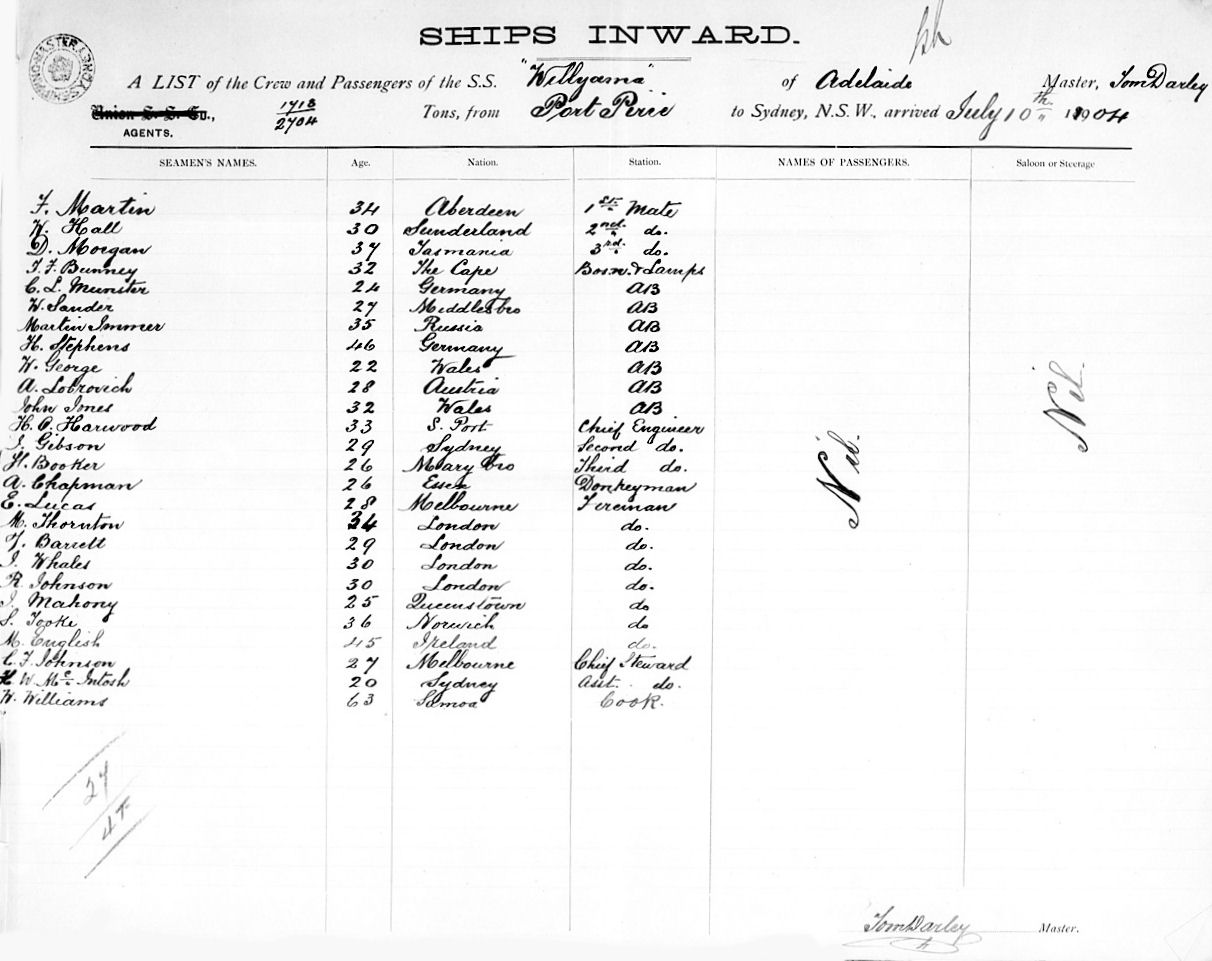 SHIPS INWARD.
A LIST of the Crew and Passengers of the S.S. "Willyama" of Adelaide Master, Tom Darley
Union S. S. Co., 1713 / 2704 Tons, from Port Pirie to Sydney, N.S.W., arrived July 10th 1904
AGENTS.
SEAMEN'S NAMES. Age. Nation. Station. NAMES OF PASSENGERS. Saloon or Steerage
F. Martin 34 Aberdeen 1st Mate
W. Hall 30 Sunderland 2nd do.
D. Morgan 37 Tasmania 3rd do.
T. F. Bunney 32 The Cape Bosn. & Lamps
C. L. Munster 24 Germany AB
W. Sander 27 Middlesbro AB
Martin Immer 35 Russia AB
H. Stephens 46 Germany AB
W. George 22 Wales AB
A. Lobrovich 28 Austria AB
John Jones 32 Wales AB
H. P. Harwood 33 S. Port Chief Engineer
J. Gibson 29 Sydney Second do.
H. Booker 26 Mary bro Third do.
A. Chapman 26 Essex Donkeyman
E. Lucas 28 Melbourne Fireman
M. Thornton 34 London do.
T. Barrett 29 London do.
J. Whales 30 London do.
R. Johnson 30 London do.
J. Mahony 25 Queenstown do
S. Tooke 36 Norwich do
M. English 45 Ireland do.
C. F. Johnson 27 Melbourne Chief Steward
H W. Mc Intosh 20 Sydney Asst. do.
W. Williams 63 Samoa Cook.
Nil.
Nil.
27
Tom Darley Master.